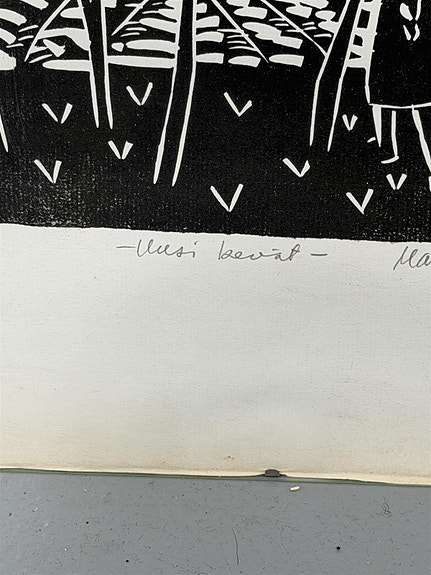 – Uusi kevät – Ma